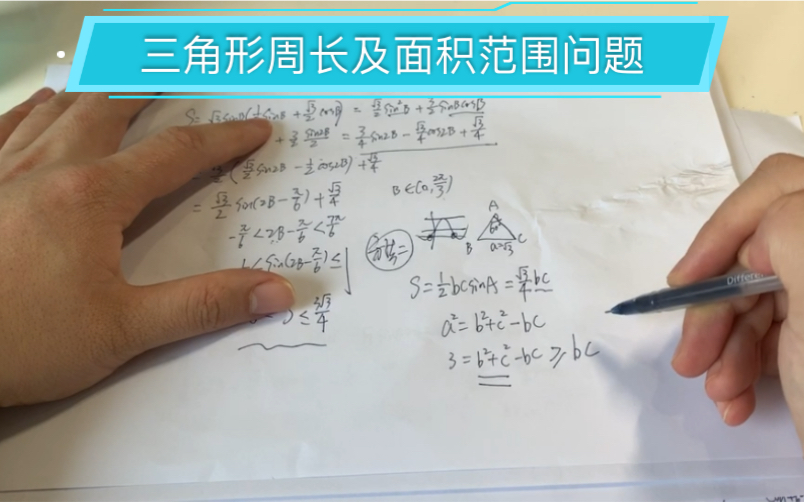 三角形周长及面积范围问题
S=√3sinB(½sinB+√3/2cosB)=√3/2sin²B+3/2sinBcosB
+3/2 sin2B/2=3/4sin2B-√3/4cos2B+√3/4
(√3/2sin2B-½cos2B)+√3/4
=√3/2sin(2B-π/6)+√3/4
B∈(0,2π/3)
-π/6<2B-π/6<7π/6
<sin(2B-π/6)≤1
≤3√3/4
A
60°
B
C
a=√3
S=½bcsinA=√3/4bc
a²=b²+c²-bc
3=b²+c²-bc≥bc